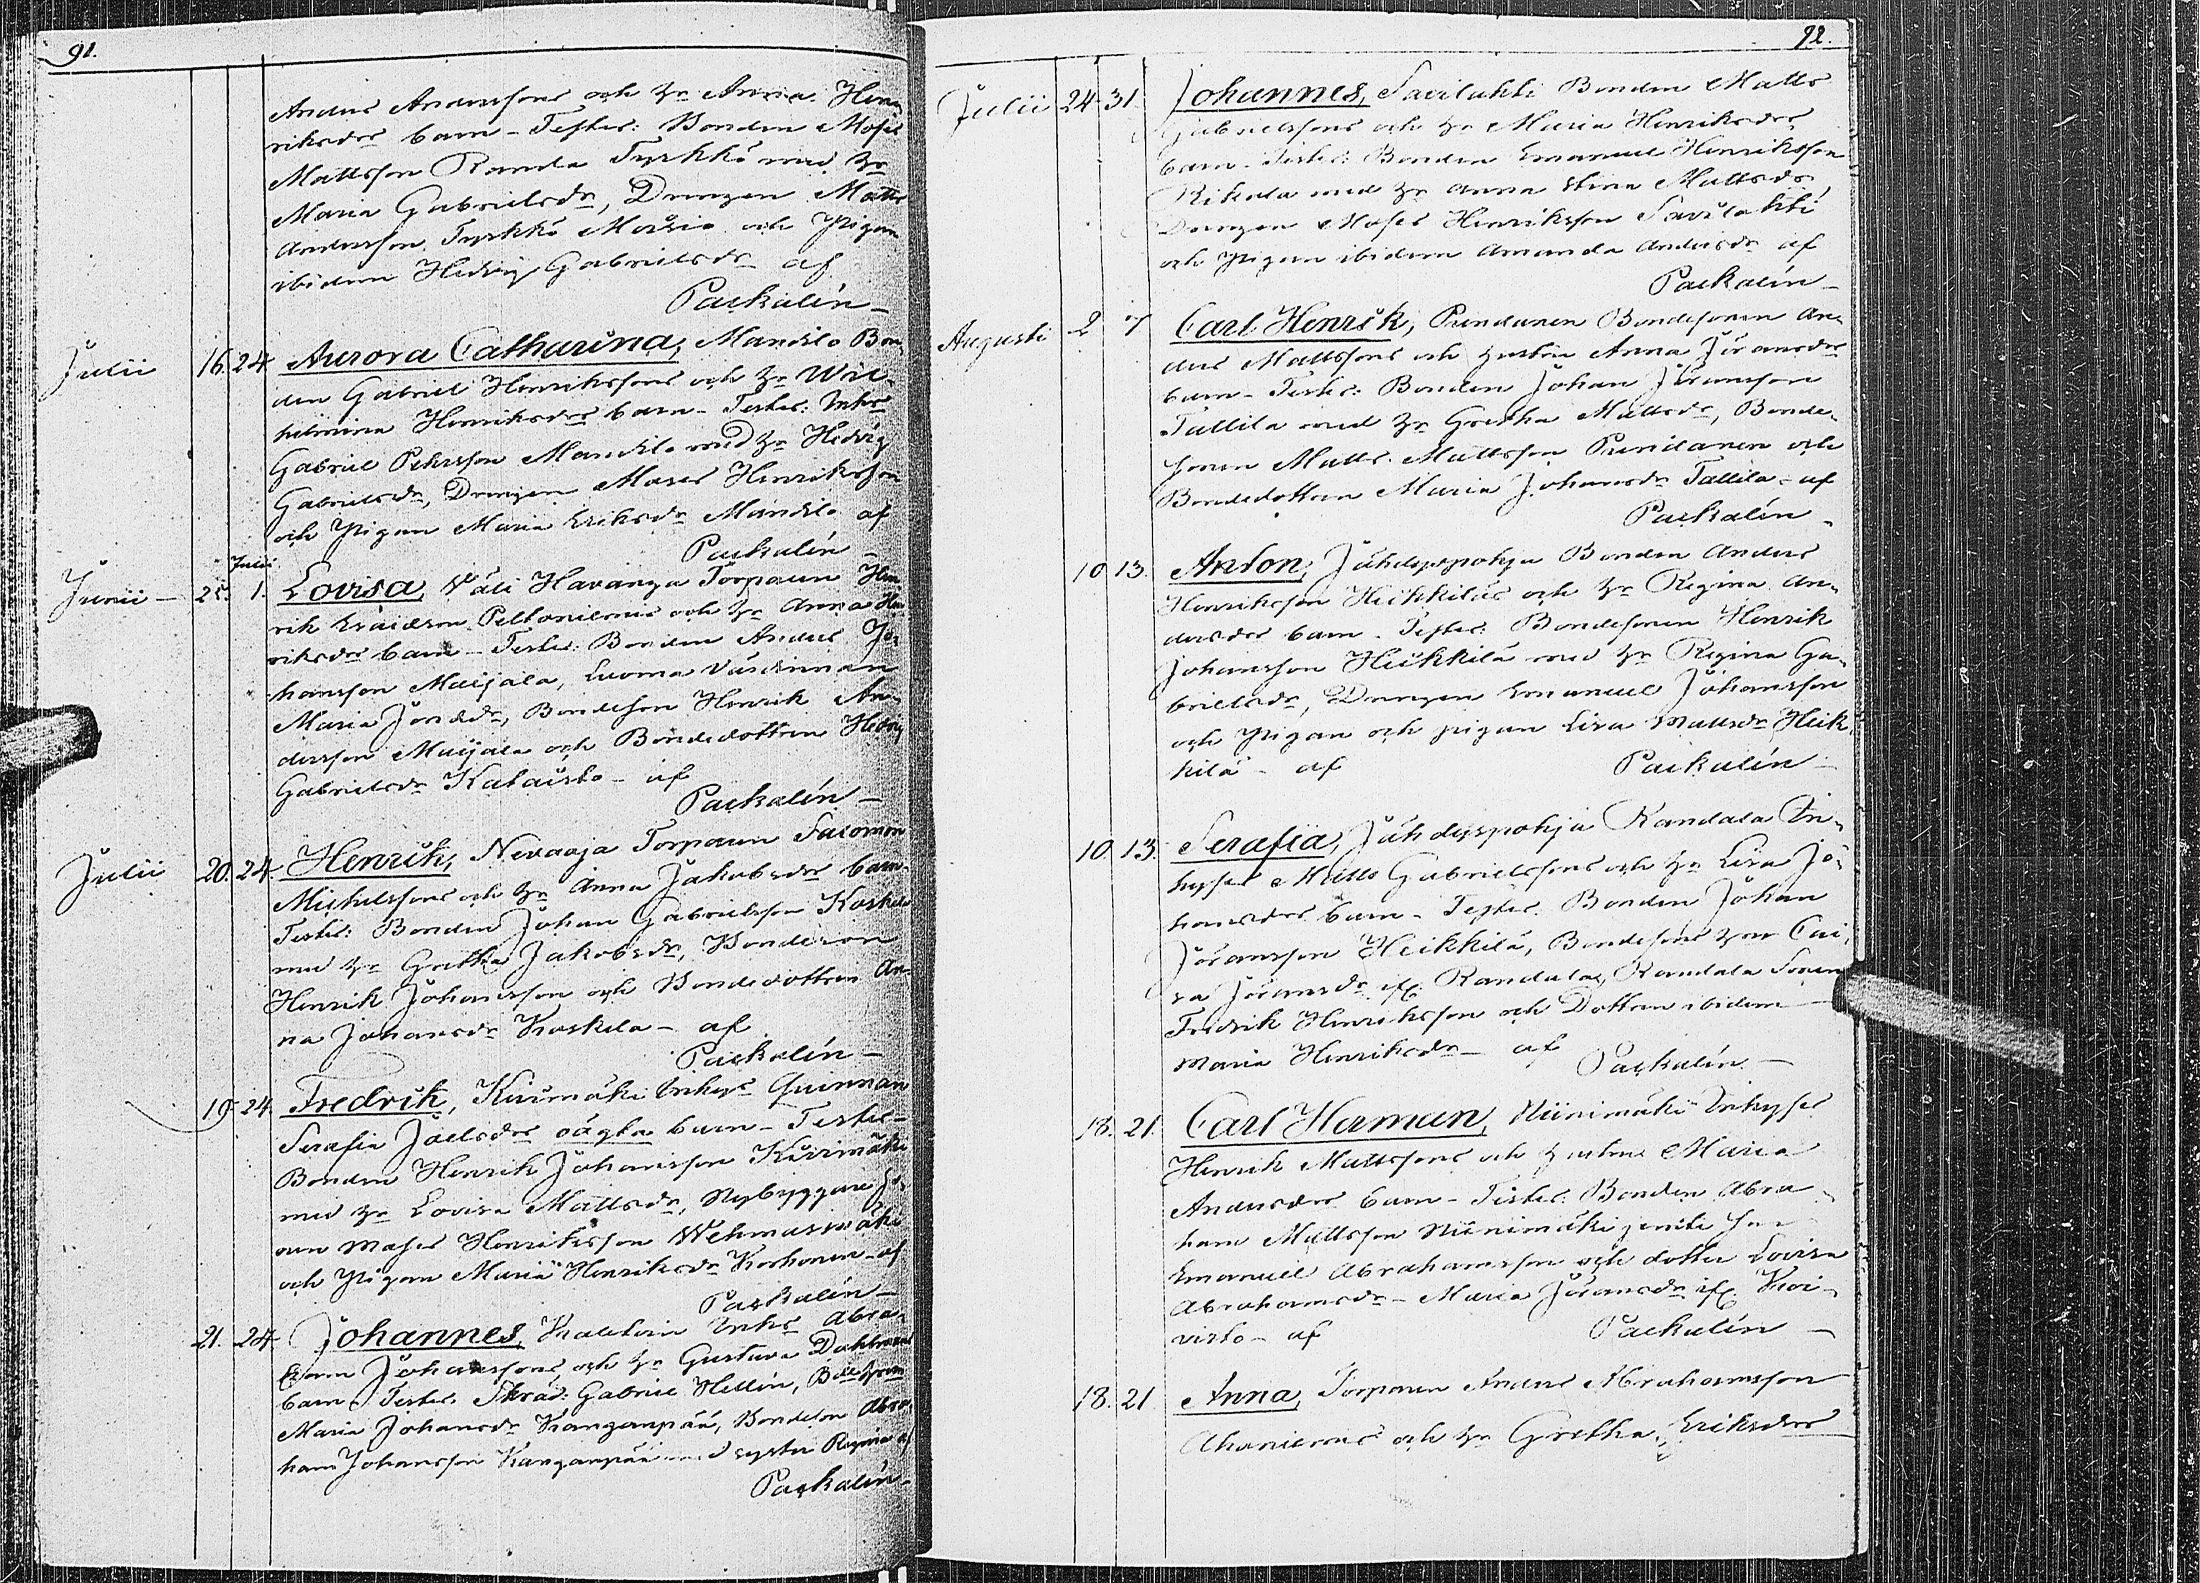 91.
Anders Anderssons och hn Anna Hen-
riksdrs barn - Testes: Bonden Moses
Mattsson Randa Tyrkkö med hn
Maria Gabrielsdr, Drengen Matts
Andersson Tyrkkö och Pigan
ibidem Hedvig Gabrielsdr af
Paskalín -
Julii 16. 24. Aurora Catharina, Mandilo Bon-
den Gabriel Henrikssons och hn Wil-
helmina Henriksdrs barn - Testes: Inhs
Gabriel Pehrsson Mandilo med hn Hedvig
Gabrielsdr, Drengen Moses Henriksson
och Pigan Maria Eriksdr Mandilo af
Paskalín -
Julii
Junii - 25. 1. Lovisa, Väli Havanga Torparen Hen
rik Esaiæson Peltoniemis och hn Anna Hen
riksdrs barn - Testes: Bonden Anders Jo-
hansson Maijala, Luoma Värdinnan
Maria Jöransdr, Bondeson Henrik An-
dersson Maijala och Bondedottren Hedvig
Gabrielsdr Kataisto - af
Paskalín -
Julii 20. 24. Henrik, Nevaoja Torparen Salomon
Michelssons och hn Anna Jakobsdrs barn -
Testes: Bonden Johan Gabrielsson Koskela
med hn Gretha Jakobsdr, Bondeson
Henrik Johansson och Bondedottren An-
na Johansdr Koskela - af
Paskalín -
19. 24. Fredrik, Kiiimäki Inhys Quinnan
Serafia Joelsdrs oägta barn - Testes -
Bonden Henrik Johansson Kiirimäki
med hn Lovisa Mattsdr, Nybyggare So-
nen Moses Henriksson Wehmasmäki
och Pigan Maria Henriksdr Korhonen - af
Paskalín -
21. 24. Johannes, Inhs Abra-
ham Johanssons och hn Gustava Dahlbroms
barn - Testes: Skräd. Gabriel Hellén,
Maria Johansdr Kangaspää, Bondeson Abra-
ham Johansson Kangaspää med syster Regina af
Paskalín -
92.
Julii 24 31 Johannes, Savilahti Bonden Matts
Gabrielssons och hn Maria Henriksdrs
barn - Testes: Bonden Emanuel Henriksson
Rikala med hn Anna Stina Mattsdr,
Drengen Moses Henriksson Savilahti
och Pigan ibidem Amanda Andersdr af
Paskalín -
Augusti 2 7 Carl Henrik, Pundanen Bondesonen An-
ders Mattssons och hustru Anna Jöransdrs
barn - Testes: Bonden Johan Jöransson
Tallila med hn Gretha Mattsdr, Bonde-
sonen Matts Mattsson Pundanen och
Bondedottren Maria Johansdr Tallila - af
Paskalín -
10 13. Anton, Jähdyspohja Bonden Anders
Henriksson Heikkiläs och hn Regina An-
dersdrs barn - Testes: Bondesonen Henrik
Johansson Heikkilä med hn Regina Ga-
brielsdr, Drengen Emanuel Johansson
och Pigan och pigan Lisa Mattsdr Heik-
kilä - af Paskalín -
10. 13. Serafia, Jähdyspohja Randala In-
hyses Matts Gabrielssons och hn Lisa Jo-
hansdrs barn - Testes: Bonden Johan
Jöransson Heikkilä, Bondesons hn Cai-
sa Jöransdr ifr. Randala, Randala Sonen
Fredrik Henriksson och Dottren ibidem
Maria Henriksdr - af Paskalín -
18. 21. Carl Herman, Niinimäki Inhyses
Henrik Mattssons och hustru Maria
Andersdrs barn - Testes: Bonden Abra-
ham Mattsson Niinimäki jemte son
Emanuel Abrahamsson och dotter Lovisa
Abrahamsdr - Maria Jöransdr ifr. Koi-
visto - af Paskalín -
18. 21 Anna, Torparen Anders Abrahamsson
Ahoniemis och hn Gretha Eriksdrs